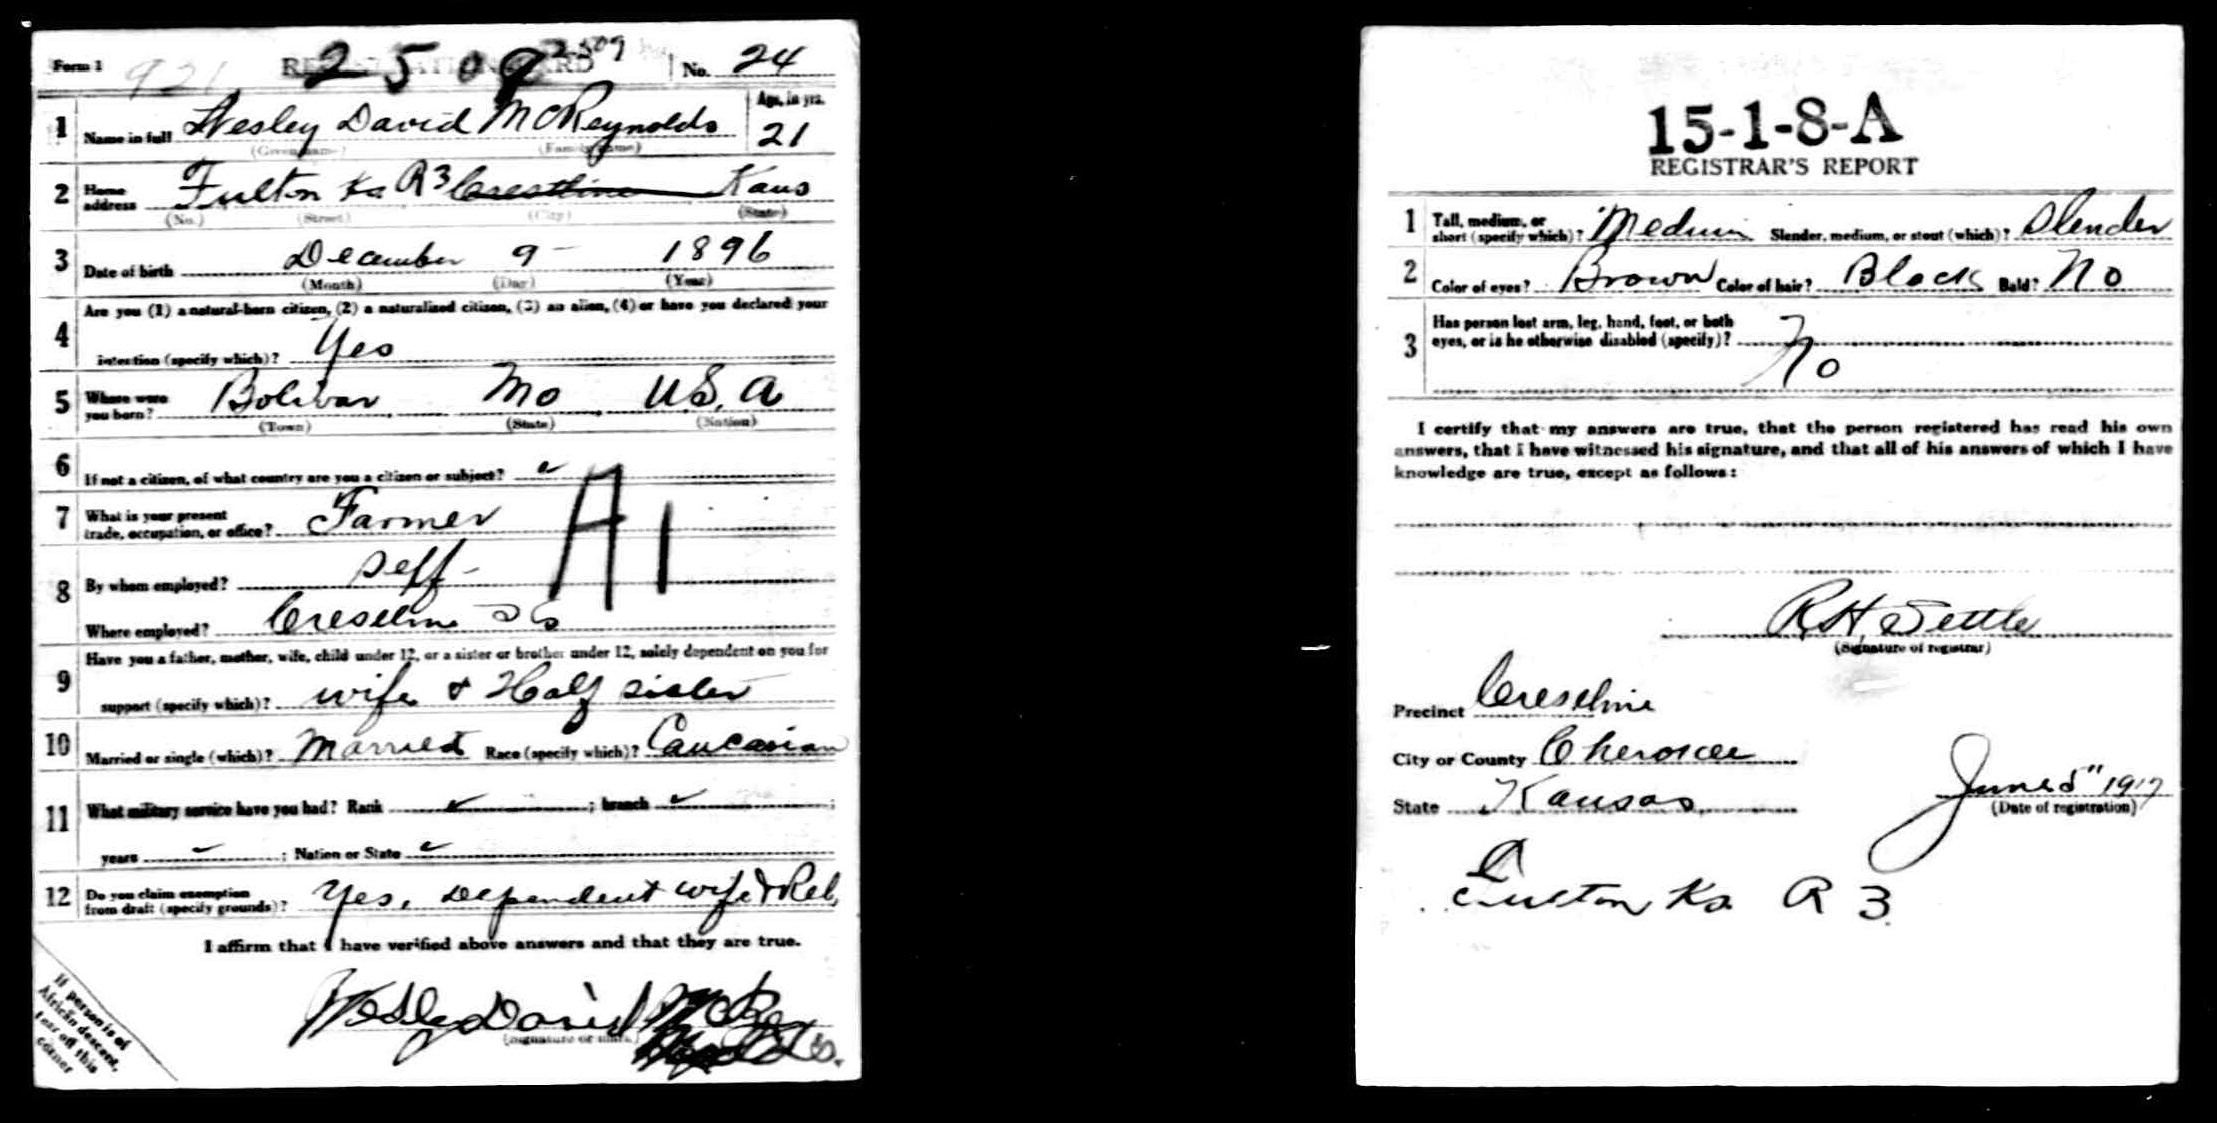 Form 1 921 REGISTRATION CARD 2509 2509 No. 24
1 Name in full Wesley David McReynolds Age, in yrs. 21
(Given name) (Family name)
2 Home address Fulton Ks R3 Crestline Kans
(No.) (Street) (City) (State)
3 Date of birth December 9 - 1896
(Month) (Day) (Year)
4 Are you (1) a natural-born citizen, (2) a naturalized citizen, (3) an alien, (4) or have you declared your
intention (specify which)? Yes
5 Where were you born? Bolivar Mo U.S.A
(Town) (State) (Nation)
6 If not a citizen, of what country are you a citizen or subject?
7 What is your present trade, occupation, or office? Farmer
A1
8 By whom employed? Self -
Where employed? Creseline
9 Have you a father, mother, wife, child under 12, or a sister or brother under 12, solely dependent on you for
support (specify which)? wife & Half sister
10 Married or single (which)? Married Race (specify which)? Caucasian
11 What military service have you had? Rank ; branch ;
years ; Nation or State
12 Do you claim exemption from draft (specify grounds)? Yes, Dependent wife & Rel.
I affirm that I have verified above answers and that they are true.
Wesley David McReynolds.
(Signature or mark)
If person is of
African descent,
tear off this
corner
15-1-8-A
REGISTRAR'S REPORT
1 Tall, medium, or short (specify which)? Medium Slender, medium, or stout (which)? Slender
2 Color of eyes? Brown Color of hair? Black Bald? No
3 Has person lost arm, leg, hand, foot, or both
eyes, or is he otherwise disabled (specify)? No
I certify that my answers are true, that the person registered has read his own
answers, that I have witnessed his signature, and that all of his answers of which I have
knowledge are true, except as follows:
R H Settle
(Signature of registrar)
Precinct Creseline
City or County Cherokee
State Kansas
June 5" 1917
(Date of registration)
Fulton Ks. R 3